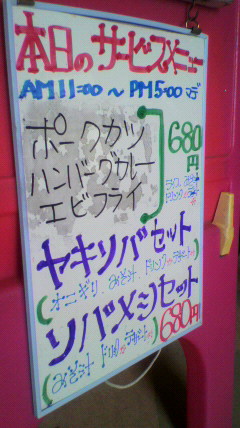 本日のサービスメニュー
AM11=00 ~ PM5=00まで
ポークカツ
ハンバーグカレー
エビフライ
680円
ライス みそ汁
ドリンク
ヤキソバセット
(オニギリ みそ汁 ドリンク デザート)
ソバメシセット
(みそ汁 ドリンク デザート)680円